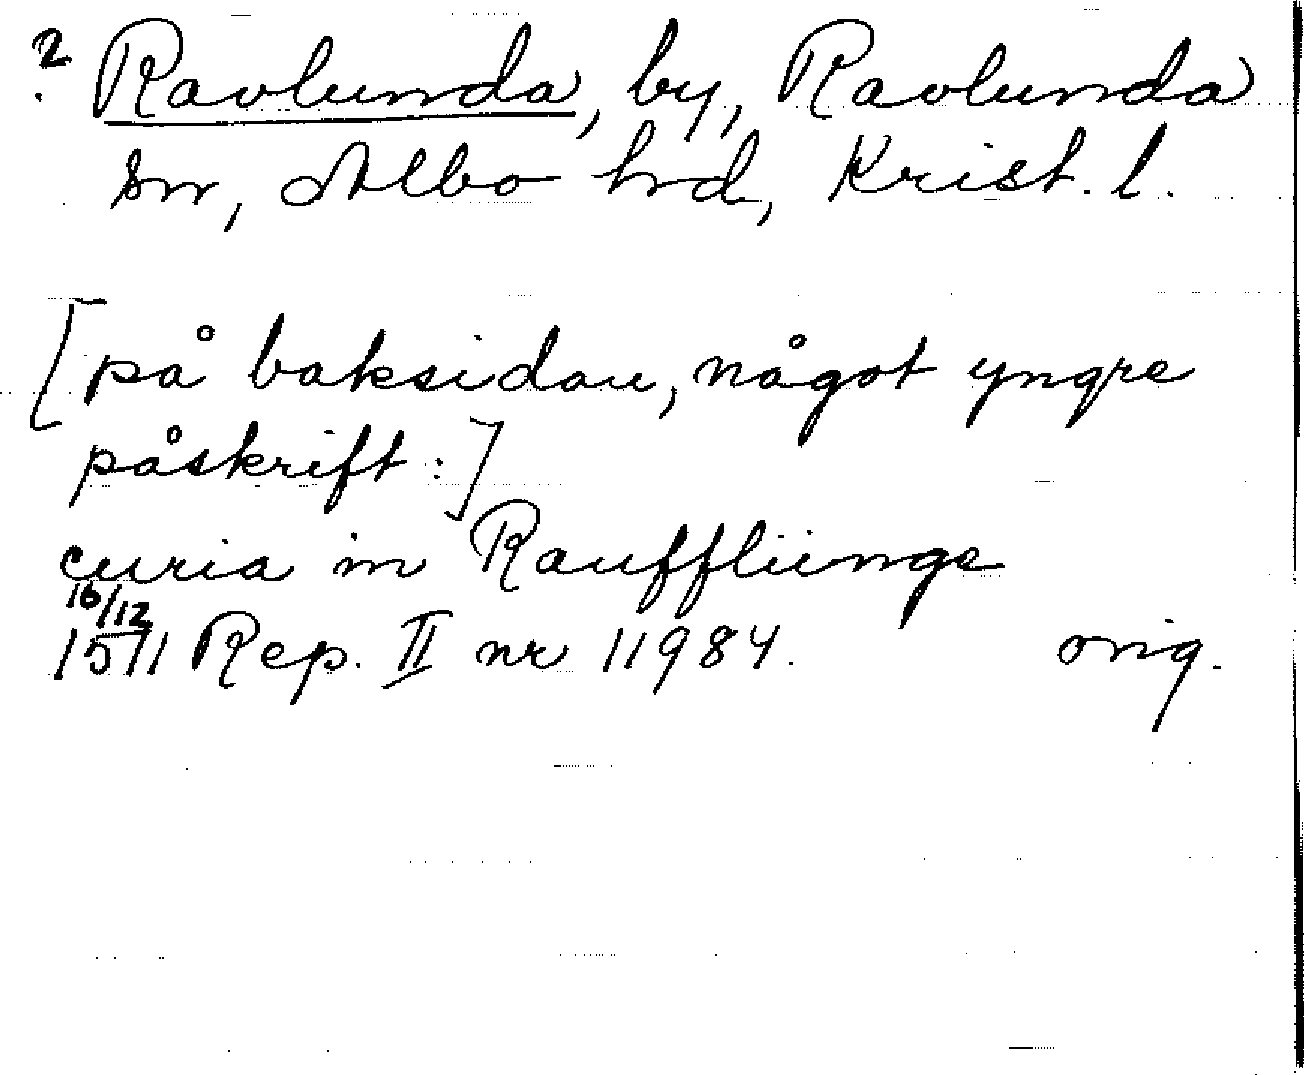 ? Ravlunda, by, Ravlunda
sn, Albo hrd, Krist. l.
[på baksidan, något yngre
påskrift:]
curia in Raufflüngs
16/12
1511 Rep. II nr 11984. orig.